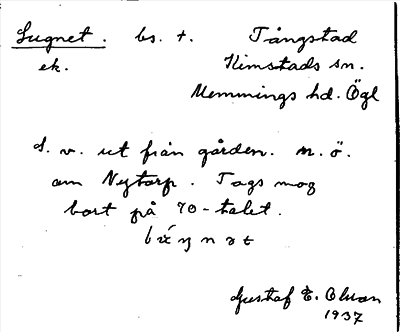 Lugnet. bs. t. Tångstad
ek. Kimstads sn.
Memmings hd. Ögl
d. v. ut från gården. n. ö.
om Nytorp. Togs nog
bort på 70-talet.
Gustaf E. Olson
1937